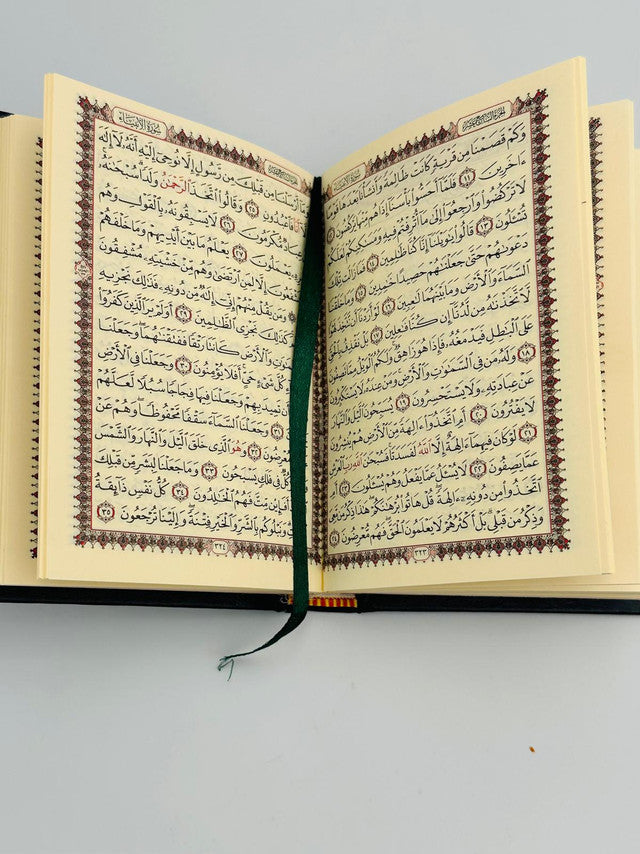 الجزء السابع عشر
سورة الأنبياء
وَكَمْ قَصَمْنَا مِن قَرْيَةٍ كَانَتْ ظَالِمَةً وَأَنشَأْنَا بَعْدَهَا قَوْمًا
ءَاخَرِينَ ١١ فَلَمَّآ أَحَسُّوا۟ بَأْسَنَآ إِذَا هُم مِّنْهَا يَرْكُضُونَ ١٢
لَا تَرْكُضُوا۟ وَٱرْجِعُوٓا۟ إِلَىٰ مَآ أُتْرِفْتُمْ فِيهِ وَمَسَـٰكِنِكُمْ لَعَلَّكُمْ
تُسْـَٔلُونَ ١٣ قَالُوا۟ يَـٰوَيْلَنَآ إِنَّا كُنَّا ظَـٰلِمِينَ ١٤ فَمَا زَالَت تِّلْكَ
دَعْوَىٰهُمْ حَتَّىٰ جَعَلْنَـٰهُمْ حَصِيدًا خَـٰمِدِينَ ١٥ وَمَا خَلَقْنَا
ٱلسَّمَآءَ وَٱلْأَرْضَ وَمَا بَيْنَهُمَا لَـٰعِبِينَ ١٦ لَوْ أَرَدْنَآ أَن نَّتَّخِذَ لَهْوًا
لَّٱتَّخَذْنَـٰهُ مِن لَّدُنَّآ إِن كُنَّا فَـٰعِلِينَ ١٧ بَلْ نَقْذِفُ بِٱلْحَقِّ
عَلَى ٱلْبَـٰطِلِ فَيَدْمَغُهُۥ فَإِذَا هُوَ زَاهِقٌ ۚ وَلَكُمُ ٱلْوَيْلُ مِمَّا تَصِفُونَ
١٨ وَلَهُۥ مَن فِى ٱلسَّمَـٰوَٰتِ وَٱلْأَرْضِ ۚ وَمَنْ عِندَهُۥ لَا يَسْتَكْبِرُونَ
عَنْ عِبَادَتِهِۦ وَلَا يَسْتَحْسِرُونَ ١٩ يُسَبِّحُونَ ٱلَّيْلَ وَٱلنَّهَارَ
لَا يَفْتُرُونَ ٢٠ أَمِ ٱتَّخَذُوٓا۟ ءَالِهَةً مِّنَ ٱلْأَرْضِ هُمْ يُنشِرُونَ
٢١ لَوْ كَانَ فِيهِمَآ ءَالِهَةٌ إِلَّا ٱللَّهُ لَفَسَدَتَا ۚ فَسُبْحَـٰنَ ٱللَّهِ رَبِّ ٱلْعَرْشِ
عَمَّا يَصِفُونَ ٢٢ لَا يُسْـَٔلُ عَمَّا يَفْعَلُ وَهُمْ يُسْـَٔلُونَ ٢٣ أَمِ
ٱتَّخَذُوا۟ مِن دُونِهِۦٓ ءَالِهَةً ۖ قُلْ هَاتُوا۟ بُرْهَـٰنَكُمْ ۖ هَـٰذَا ذِكْرُ مَن مَّعِىَ
وَذِكْرُ مَن قَبْلِى ۗ بَلْ أَكْثَرُهُمْ لَا يَعْلَمُونَ ٱلْحَقَّ ۖ فَهُم مُّعْرِضُونَ ٢٤
٣٢٣
سورة الأنبياء
وَمَآ أَرْسَلْنَا مِن قَبْلِكَ مِن رَّسُولٍ إِلَّا نُوحِىٓ إِلَيْهِ أَنَّهُۥ لَآ إِلَـٰهَ
إِلَّآ أَنَا۠ فَٱعْبُدُونِ ٢٥ وَقَالُوا۟ ٱتَّخَذَ ٱلرَّحْمَـٰنُ وَلَدًا ۗ سُبْحَـٰنَهُۥ ۚ
بَلْ عِبَادٌ مُّكْرَمُونَ ٢٦ لَا يَسْبِقُونَهُۥ بِٱلْقَوْلِ وَهُم
بِأَمْرِهِۦ يَعْمَلُونَ ٢٧ يَعْلَمُ مَا بَيْنَ أَيْدِيهِمْ وَمَا خَلْفَهُمْ
وَلَا يَشْفَعُونَ إِلَّا لِمَنِ ٱرْتَضَىٰ وَهُم مِّنْ خَشْيَتِهِۦ مُشْفِقُونَ
٢٨ وَمَن يَقُلْ مِنْهُمْ إِنِّىٓ إِلَـٰهٌ مِّن دُونِهِۦ فَذَٰلِكَ نَجْزِيهِ
جَهَنَّمَ ۚ كَذَٰلِكَ نَجْزِى ٱلظَّـٰلِمِينَ ٢٩ أَوَلَمْ يَرَ ٱلَّذِينَ كَفَرُوٓا۟
أَنَّ ٱلسَّمَـٰوَٰتِ وَٱلْأَرْضَ كَانَتَا رَتْقًا فَفَتَقْنَـٰهُمَا ۖ وَجَعَلْنَا
مِنَ ٱلْمَآءِ كُلَّ شَىْءٍ حَىٍّ ۖ أَفَلَا يُؤْمِنُونَ ٣٠ وَجَعَلْنَا فِى ٱلْأَرْضِ
رَوَٰسِىَ أَن تَمِيدَ بِهِمْ وَجَعَلْنَا فِيهَا فِجَاجًا سُبُلًا لَّعَلَّهُمْ
يَهْتَدُونَ ٣١ وَجَعَلْنَا ٱلسَّمَآءَ سَقْفًا مَّحْفُوظًا ۖ وَهُمْ عَنْ
ءَايَـٰتِهَا مُعْرِضُونَ ٣٢ وَهُوَ ٱلَّذِى خَلَقَ ٱلَّيْلَ وَٱلنَّهَارَ وَٱلشَّمْسَ
وَٱلْقَمَرَ ۖ كُلٌّ فِى فَلَكٍ يَسْبَحُونَ ٣٣ وَمَا جَعَلْنَا لِبَشَرٍ مِّن قَبْلِكَ
ٱلْخُلْدَ ۖ أَفَإِي۟ن مِّتَّ فَهُمُ ٱلْخَـٰلِدُونَ ٣٤ كُلُّ نَفْسٍ ذَآئِقَةُ
ٱلْمَوْتِ ۗ وَنَبْلُوكُم بِٱلشَّرِّ وَٱلْخَيْرِ فِتْنَةً ۖ وَإِلَيْنَا تُرْجَعُونَ ٣٥
٣٢٤